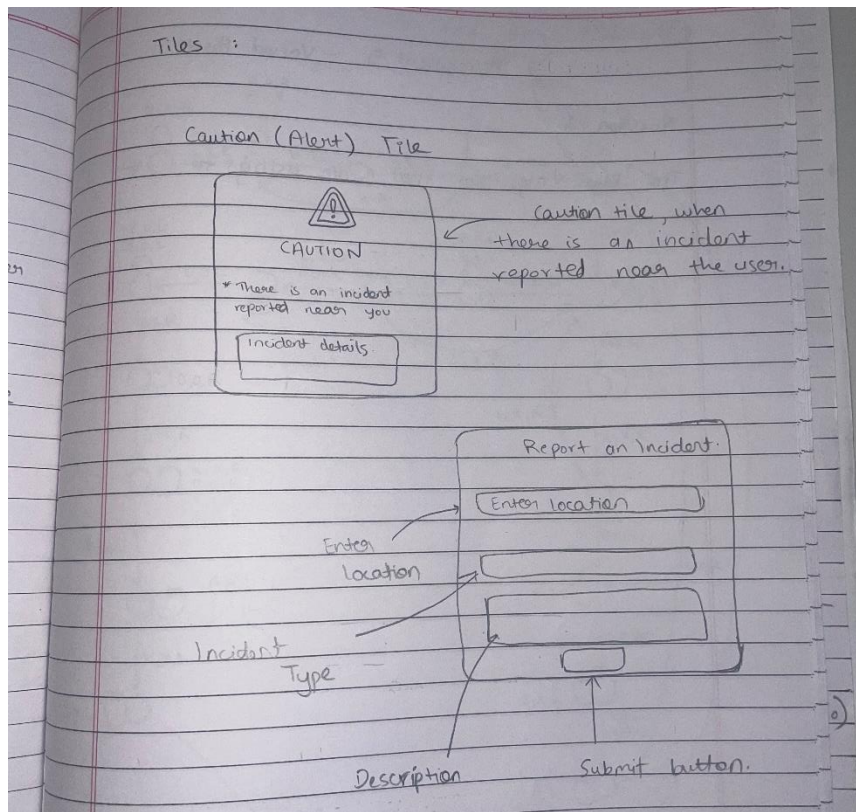 Tiles :
Caution (Alert) Tile
CAUTION
* There is an incident
reported near you
Incident details.
Caution tile, when
there is an incident
reported near the user.
Report an Incident.
Enter location
Enter
location
Incident
Type
Description
Submit button.